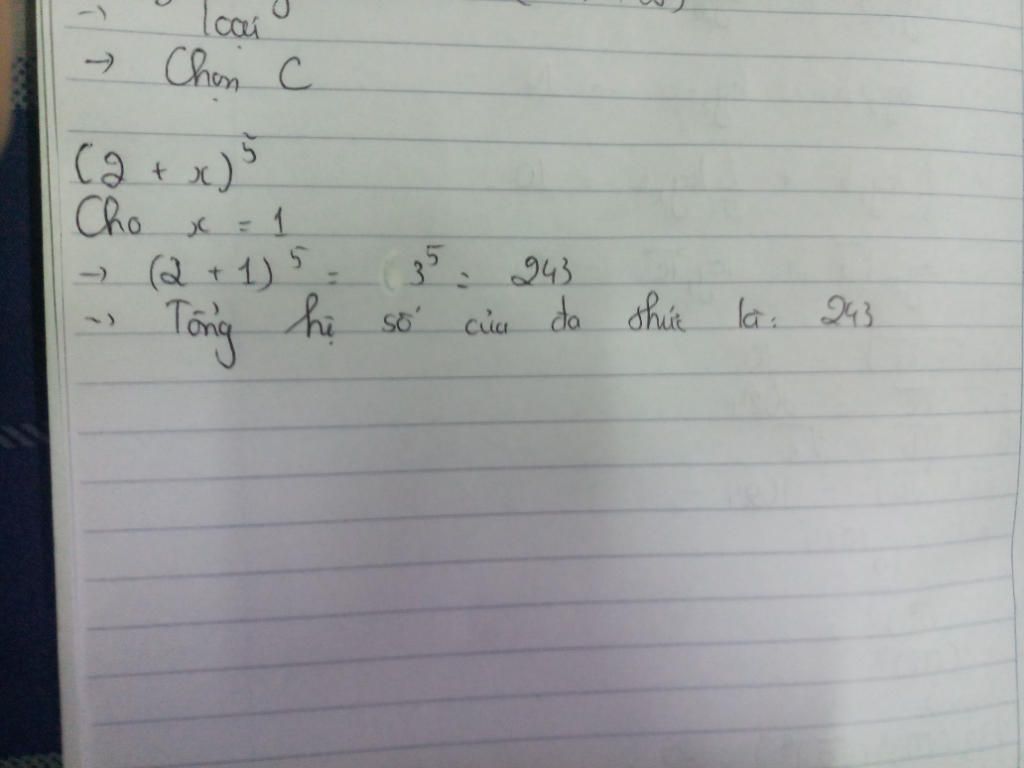 → loại
→ Chọn C
(2 + x)⁵
Cho x = 1
→ (2 + 1)⁵ = 3⁵ = 243
→ Tổng hệ số của đa thức là: 243